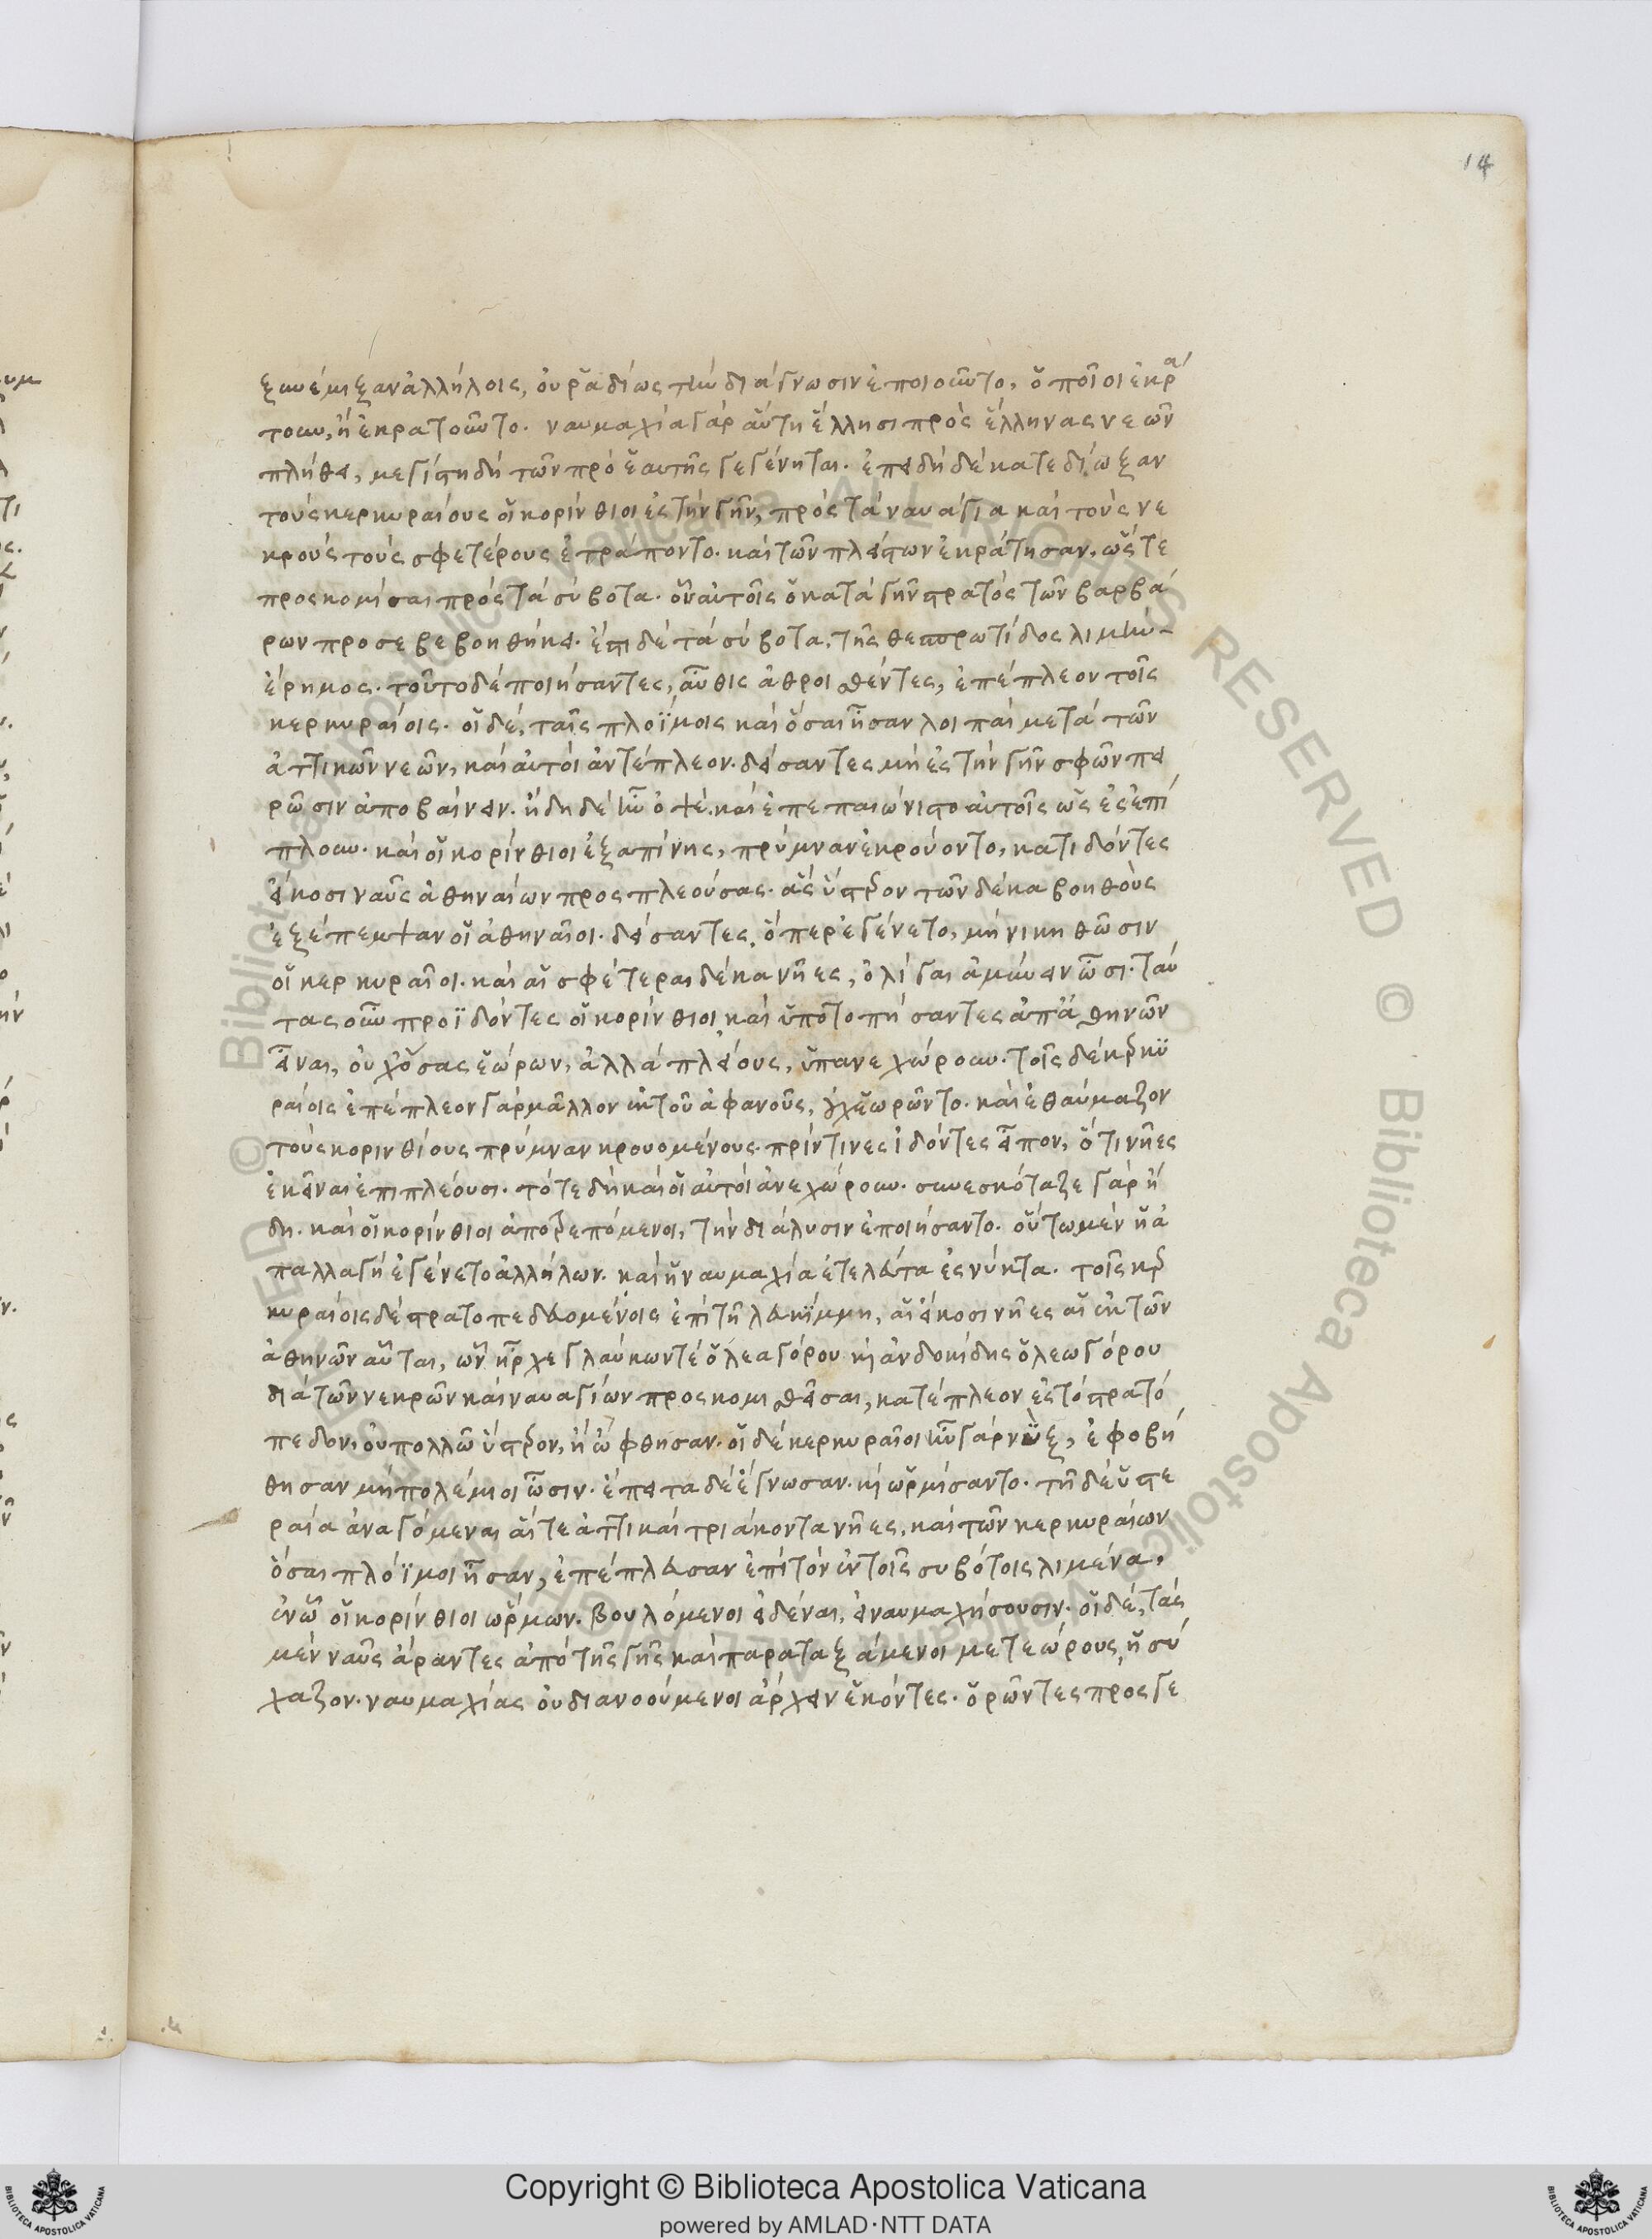 14
ξυνέμιξαν ἀλλήλοις, οὐ ῥαδίως τὴν διάγνωσιν ἐποιοῦντο, ὁποῖοι ἐκρά
τουν, ἢ ἐκρατοῦντο. ναυμαχία γὰρ αὕτη ἕλλησι πρὸς ἕλληνας νεῶν
πλήθει, μεγίστη δὴ τῶν πρὸ ἑαυτῆς γεγένηται. ἐπειδὴ δὲ κατεδίωξαν
τοὺς κερκυραίους οἱ κορίνθιοι ἐς τὴν γῆν, πρὸς τὰ ναυάγια καὶ τοὺς νε
κροὺς τοὺς σφετέρους ἐτράποντο. καὶ τῶν πλείστων ἐκράτησαν, ὥστε
προσκομίσαι πρὸς τὰ σύβοτα. οὗ αὐτοῖς ὁ κατὰ γῆν στρατὸς τῶν βαρβά
ρων προσεβεβοηθήκει. ἔστι δὲ τὰ σύβοτα, τῆς θεσπρωτίδος λιμὴν
ἐρῆμος. τοῦτο δὲ ποιήσαντες, αὖθις ἀθροισθέντες, ἐπέπλεον τοῖς
κερκυραίοις. οἱ δὲ, ταῖς πλοΐμοις καὶ ὅσαι ἦσαν λοιπαὶ μετὰ τῶν
ἀττικῶν νεῶν, καὶ αὐτοὶ ἀντέπλεον. δείσαντες μὴ ἐς τὴν γῆν σφῶν πει
ρῶσιν ἀποβαίνειν. ἤδη δὲ ἦν ὀψὲ. καὶ ἐπεπαιώνιστο αὐτοῖς ὡς ἐς ἐπί
πλουν. καὶ οἱ κορίνθιοι ἐξαπίνης, πρύμναν ἐκρούοντο, κατιδόντες
εἴκοσι ναῦς ἀθηναίων προσπλεούσας. ἃς ὕστερον τῶν δέκα βοηθοὺς
ἐξέπεμψαν οἱ ἀθηναῖοι. δείσαντες, ὅπερ ἐγένετο, μὴ νικηθῶσιν
οἱ κερκυραῖοι. καὶ αἱ σφέτεραι δέκα νῆες, ὀλίγαι ἀμύνειν ὦσι. ταύ
τας οὖν προϊδόντες οἱ κορίνθιοι καὶ ὑποτοπήσαντες ἀπ' ἀθηνῶν
εἶναι, οὐχ ὅσας ἑώρων, ἀλλὰ πλείους, ὑπανεχώρουν. τοῖς δὲ κερκυ
ραίοις ἐπέπλεον γὰρ μᾶλλον ἐκ τοῦ ἀφανοῦς, οὐχ ἑωρῶντο. καὶ ἐθαύμαζον
τοὺς κορινθίους πρύμναν κρουομένους. πρίν τινες ἰδόντες εἶπον, ὅτι νῆες
ἐκεῖναι ἐπιπλέουσι. τότε δὴ καὶ οἱ αὐτοὶ ἀνεχώρουν. συνεσκόταζε γὰρ ἤ
δη. καὶ οἱ κορίνθιοι ἀποτρεπόμενοι, τὴν διάλυσιν ἐποιήσαντο. οὕτω μὲν ἡ ἀ
παλλαγὴ ἐγένετο ἀλλήλων. καὶ ἡ ναυμαχία ἐτελεύτα ἐς νύκτα. τοῖς κερ
κυραίοις δὲ στρατοπεδευομένοις ἐπὶ τῇ λευκίμμη, αἱ εἴκοσι νῆες αἱ ἐκ τῶν
ἀθηνῶν αὗται, ὧν ἦρχε γλαύκων τὲ ὁ λεαγόρου καὶ ἀνδοκίδης ὁ λεωγόρου
διὰ τῶν νεκρῶν καὶ ναυαγίων προσκομισθεῖσαι, κατέπλεον ἐς τὸ στρατό
πεδον. οὐ πολλῶ ὕστερον, ἢ ὤφθησαν. οἱ δὲ κερκυραῖοι ἦν γὰρ νὺξ, ἐφοβή
θησαν μὴ πολέμιοι ὦσιν. ἔπειτα δὲ ἔγνωσαν. καὶ ὡρμίσαντο. τῇ δὲ ὑστε
ραία ἀναγόμεναι αἵ τε ἀττικαὶ τριάκοντα νῆες, καὶ τῶν κερκυραίων
ὅσαι πλόϊμοι ἦσαν, ἐπέπλευσαν ἐπὶ τὸν ἐν τοῖς συβότοις λιμένα,
ἐν ᾧ οἱ κορίνθιοι ὥρμων. βουλόμενοι εἰδέναι, εἰ ναυμαχήσουσιν. οἱ δὲ, τὰς
μὲν ναῦς ἄραντες ἀπὸ τῆς γῆς καὶ παραταξάμενοι μετεώρους, ἡσύ
χαζον. ναυμαχίας οὐ διανοούμενοι ἄρχειν ἑκόντες. ὁρῶντες προσγε
© Biblioteca Apostolica Vaticana ALL RIGHTS RESERVED
Copyright © Biblioteca Apostolica Vaticana
powered by AMLAD·NTT DATA
BIBLIOTECA APOSTOLICA VATICANA
BIBLIOTECA APOSTOLICA VATICANA